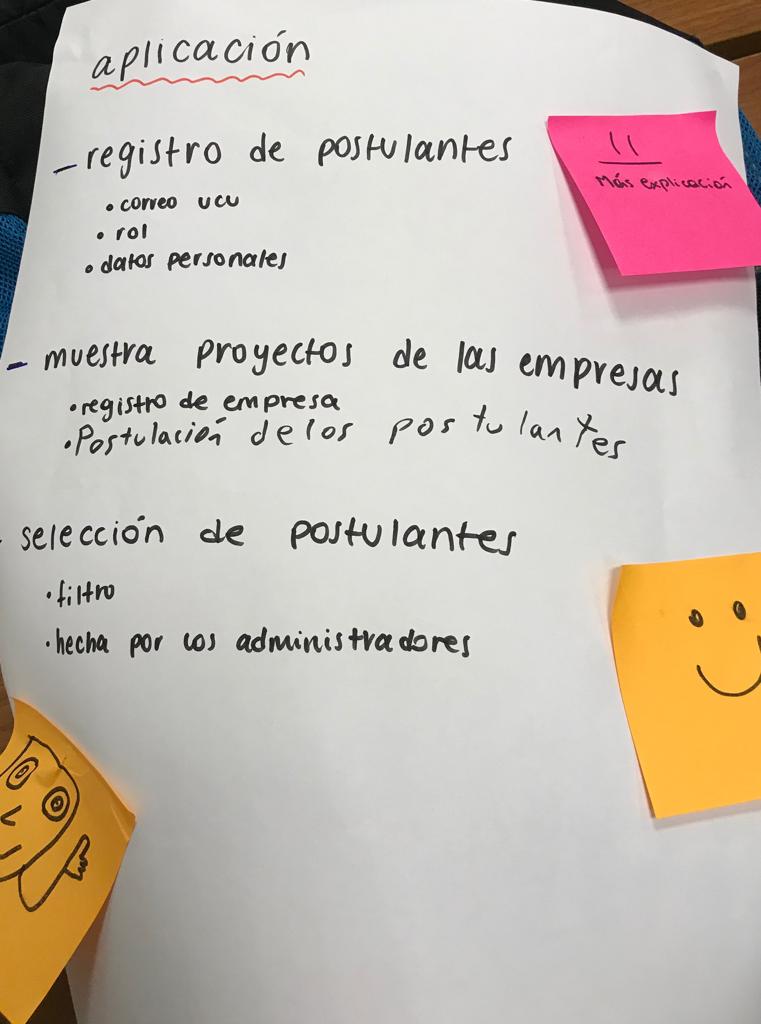 aplicación
- registro de postulantes
• correo ucu
• rol
• datos personales
Más explicación
- muestra proyectos de las empresas
• registro de empresa
• Postulación de los postulantes
- selección de postulantes
• filtro
• hecha por los administradores